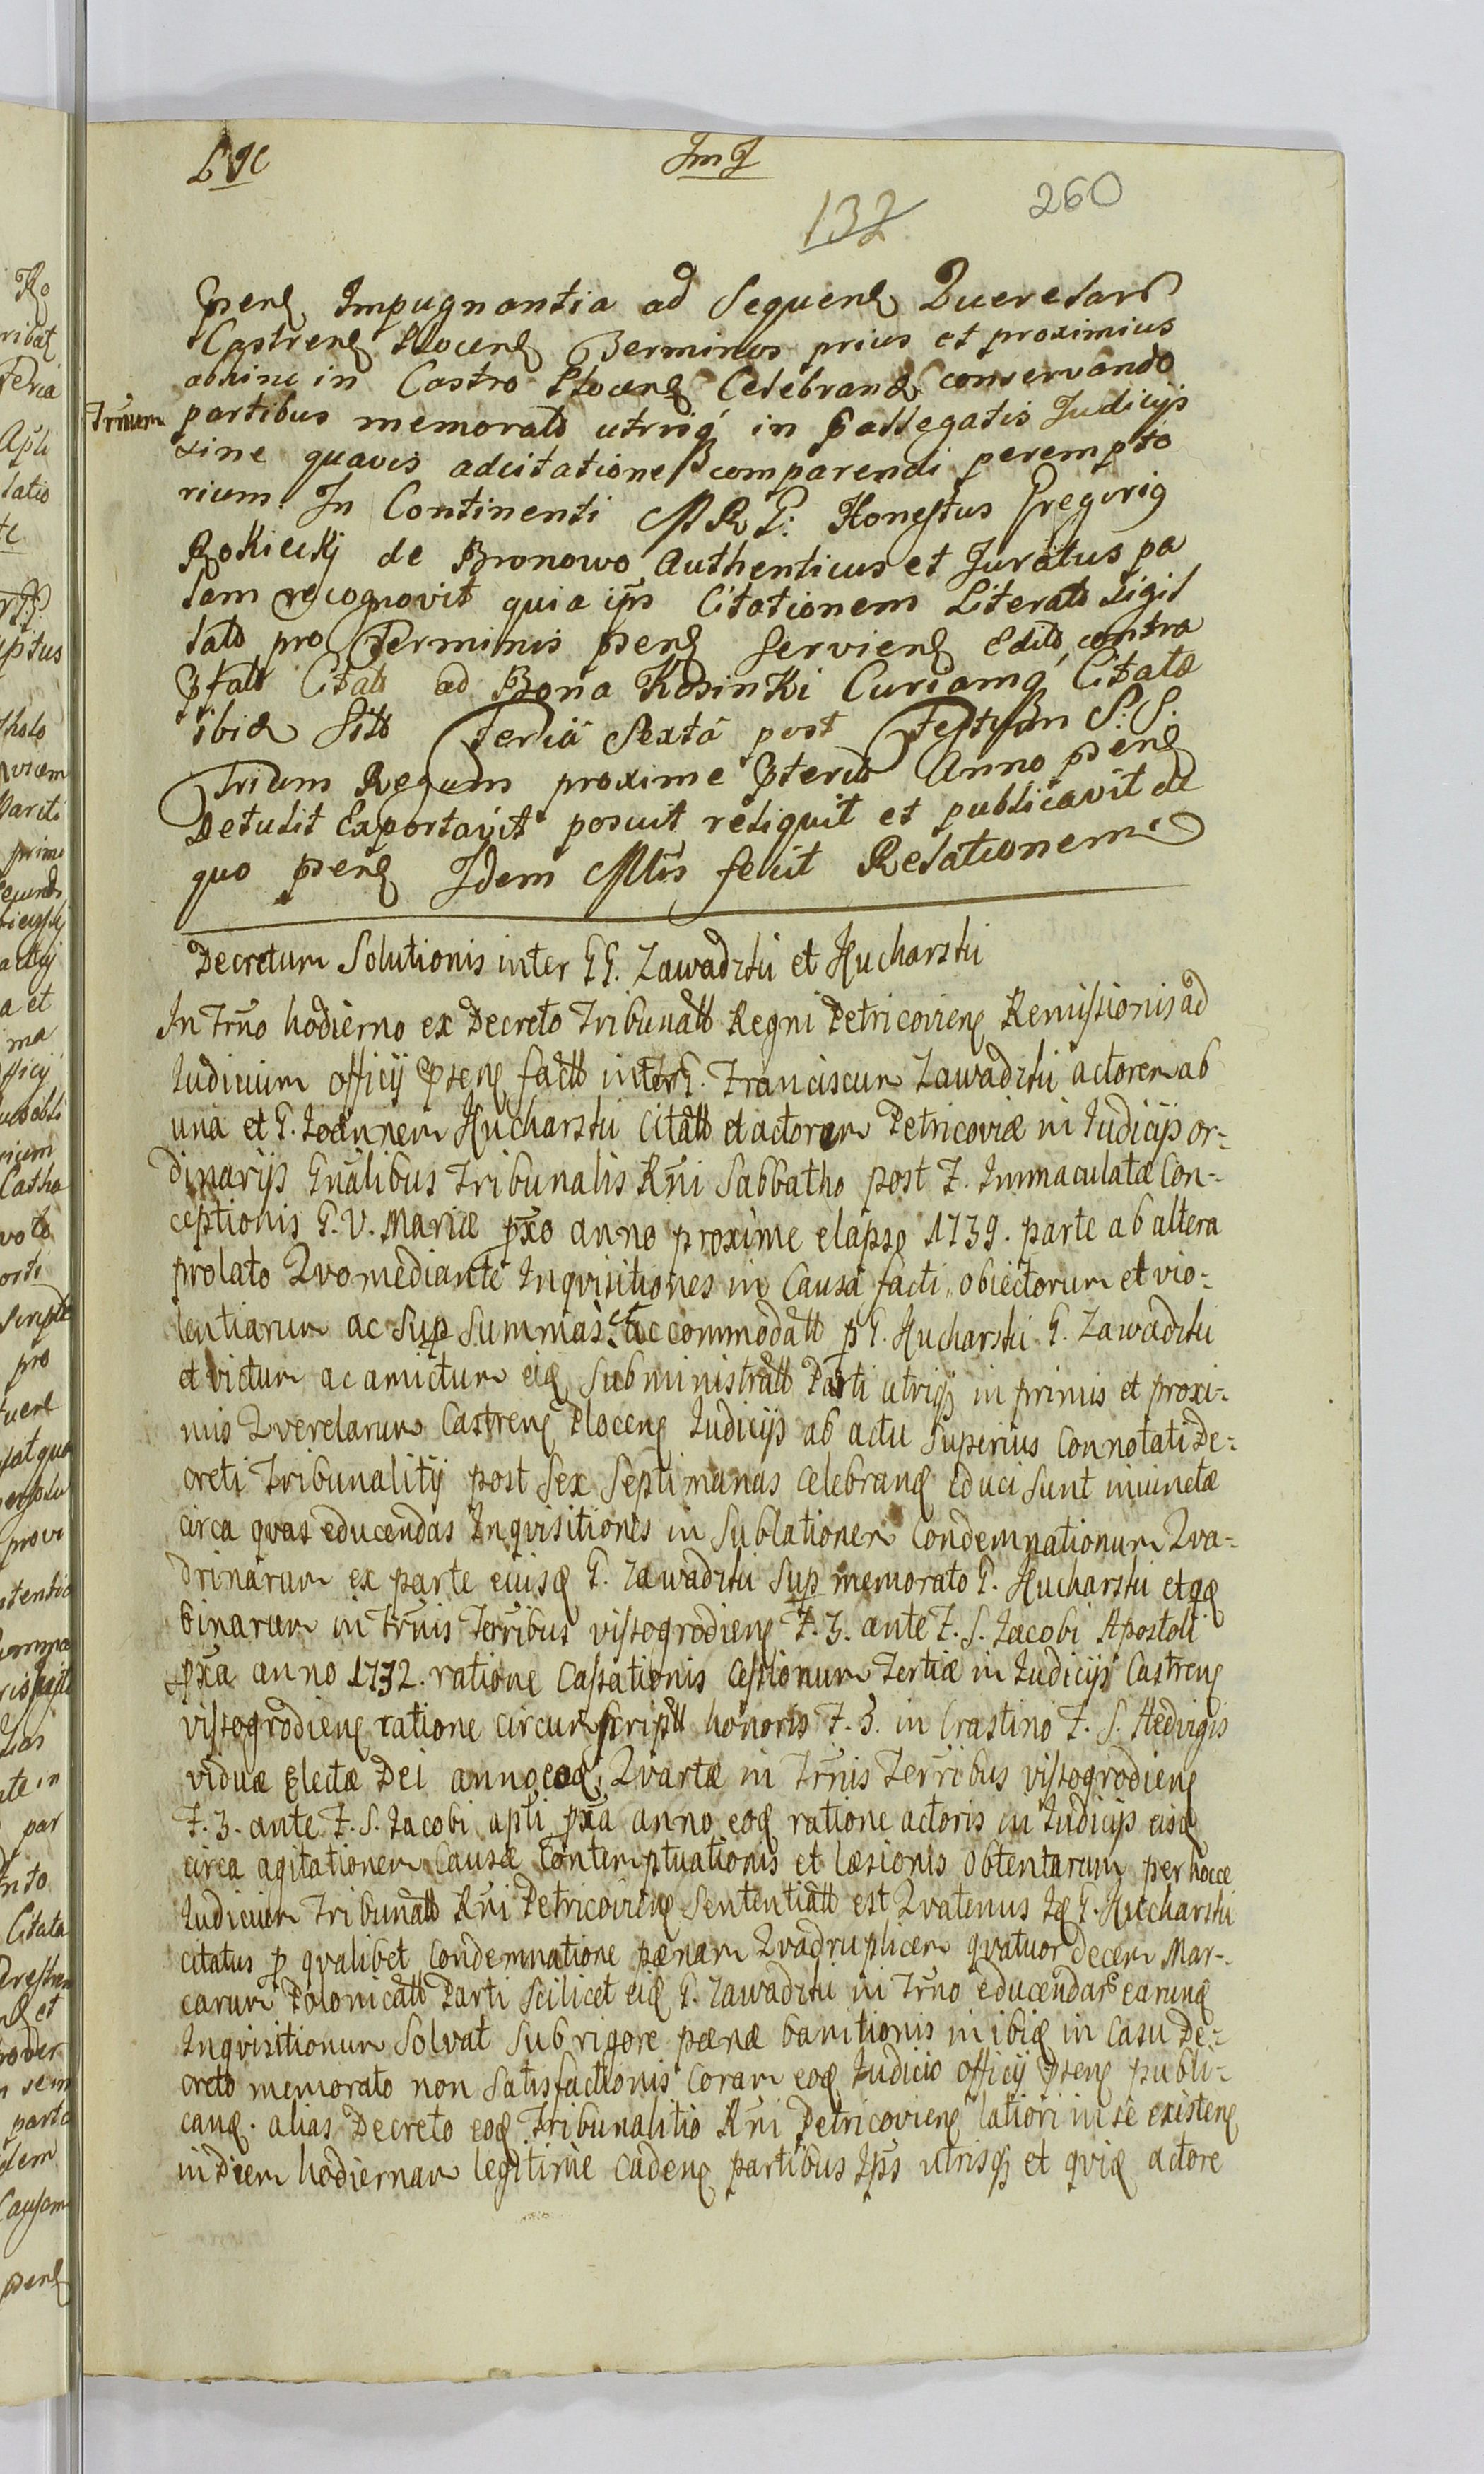 132
260
Impugnantia ad Sequen Querelar
Castren Plocen Terminos prius et proximius
abhinc in Castro Plocen Celebran conservando
Trnum partibus memorato utrisq in pallegatis Judicijs
sine quavis adcitatione comparendi perempto
rium. In Continenti MRG: Honestus Gregorig
Rokicckj de Bronowo Authenticus et Juratus pa
lam recognovit quia ips Citationem Literato sigil
lato pro Terminis psens servien edito contra
Citato ad Bona Kosinki Curiamq Citato
ibid Sito Feria Sexta post Festum S:S.
Trium Regum proxime pterito Anno psen
Detulit Exportavit posuit reliquit et publicavit de
quo psen Idem Mtis fecit Relationem
Decretum Solutionis inter GG. Zawadzki et Hucharski
In Trno hodierno ex Decreto Tribunalto Regni Petricovien Remissionis ad
Iudicium officij psens facto inter G. Franciscum Zawadzki actorem ab
una et G. Ioannem Hucharski Citato et actorem Petricoviæ in Iudicijs or-
dinarijs Gnalibus Tribunalis Rni Sabbatho post F. Immaculatæ Con-
ceptionis B. V. Mariæ pxo anno proxime elapso 1739. parte ab altera
prolato Qvo mediante Inqvisitiones in Causa facti, obiectorum et vio-
lentiarum ac Sup Summas accommodato p G. Hucharski G. Zawadzki
et victum ac amictum eid Subministrato Parti utriq in primis et proxi-
mis Qverelarum Castren Plocen Iudicijs ab actu Superius Connotati De-
creti Tribunalitij post Sex Septimanas Celebran Educi Sunt iniunctæ
circa qvas educendas Inqvisitiones in Sublationem Condemnationum Qva-
drinarum ex parte eiusd G. Zawadzki Sup memorato G. Hucharski etqd
binarum in Trnis Terribus vissogrodien F. 3. ante F. S. Iacobi Apostoli
pxa anno 1732. ratione Cassationis Cessionum Tertiæ in Iudicijs Castren
vissogrodien ratione circumscripto honoris F. 3. in Crastino F. S. Hedvigis
viduæ Electæ Dei anno eod, Qvartæ in Trnis Terribus vissogrodien
F. 3. ante F. S. Iacobi apli pxa anno eod ratione actoris in Iudicijs eisd
circa agitationem Causæ Contemptuationis et læsionis obtentarum per hocce
Iudicium Tribunalto Rni Petricovien Sententiato est Qvatenus Id G. Hucharski
citatus p qvalibet Condemnatione pænam Qvadruplicem qvatuor decem Mar-
carum Polonicalto Parti Scilicet eid G. Zawadzki in Trno educendar earund
Inqvisitionum Solvat Sub rigore pænæ banitionis in ibid in Casu De-
creto memorato non Satisfactionis Coram eod Iudicio officij psens publi-
cand. alias Decreto eod Tribunalitio Rni Petricovien latiori in se existen
in Diem hodiernam legitime Caden partibus Ips utrisq et qvid actore